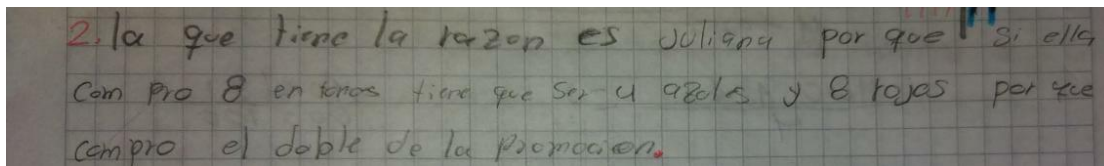 2. la que tiene la razon es Juliana por que si ella
Com pro 8 en tonos tiene que Ser 4 azols y 8 rojos por que
compro el doble de la Promocion.